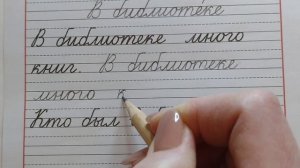 В библиотеке
В библиотеке много
книг. В библиотеке
много к
Кто был